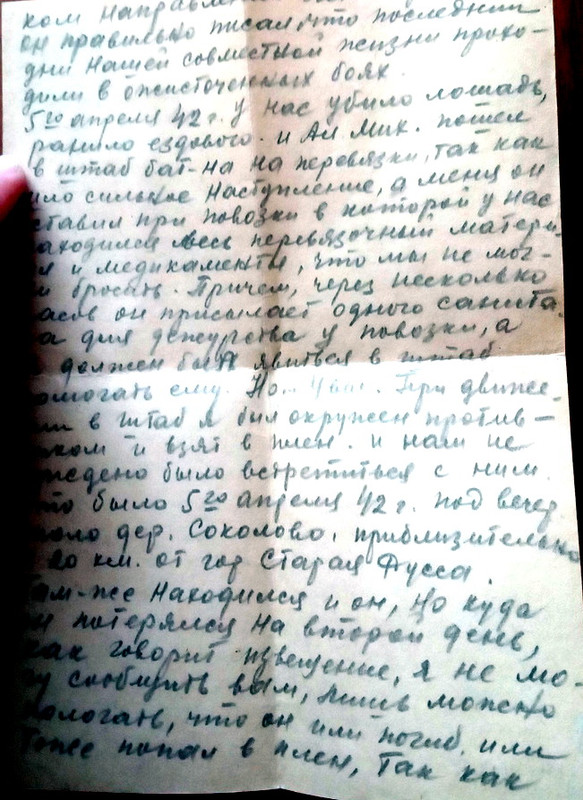 ком направлен
он правильно писал, что последнии
дни нашей совместной жизни прохо-
дили в ожисточенных боях.
5го апреля 42 г. у нас убило лошадь,
ранило ездового. и Ал. Мик. пошел
в штаб бат-на на перевязки, так как
шло сильное наступление, а меня он
ставил при повозки в которой у нас
аходился весь перевязочный матери-
л и медикаменты, что мы не мог-
и бросать. Причем, через несколько
асов он присылает одного санита-
а для дежурства у повозки, а
должен был явиться в штаб
омогать ему. Но.. Увы. При движе-
ии в штаб я был окружен против-
ком и взят в плен. и нам не
ждено было встретиться с ним.
то было 5го апреля 42 г. под вечер
коло дер. Соколово, приблизительно
20 км. от гор Старая Русса.
ам-же находился и он, но куда
н потерялся на второй день,
как говорит извещение, я не мо-
гу сообщить вам, лишь можно
ологать, что он или погиб, или
тоже попал в плен, так как